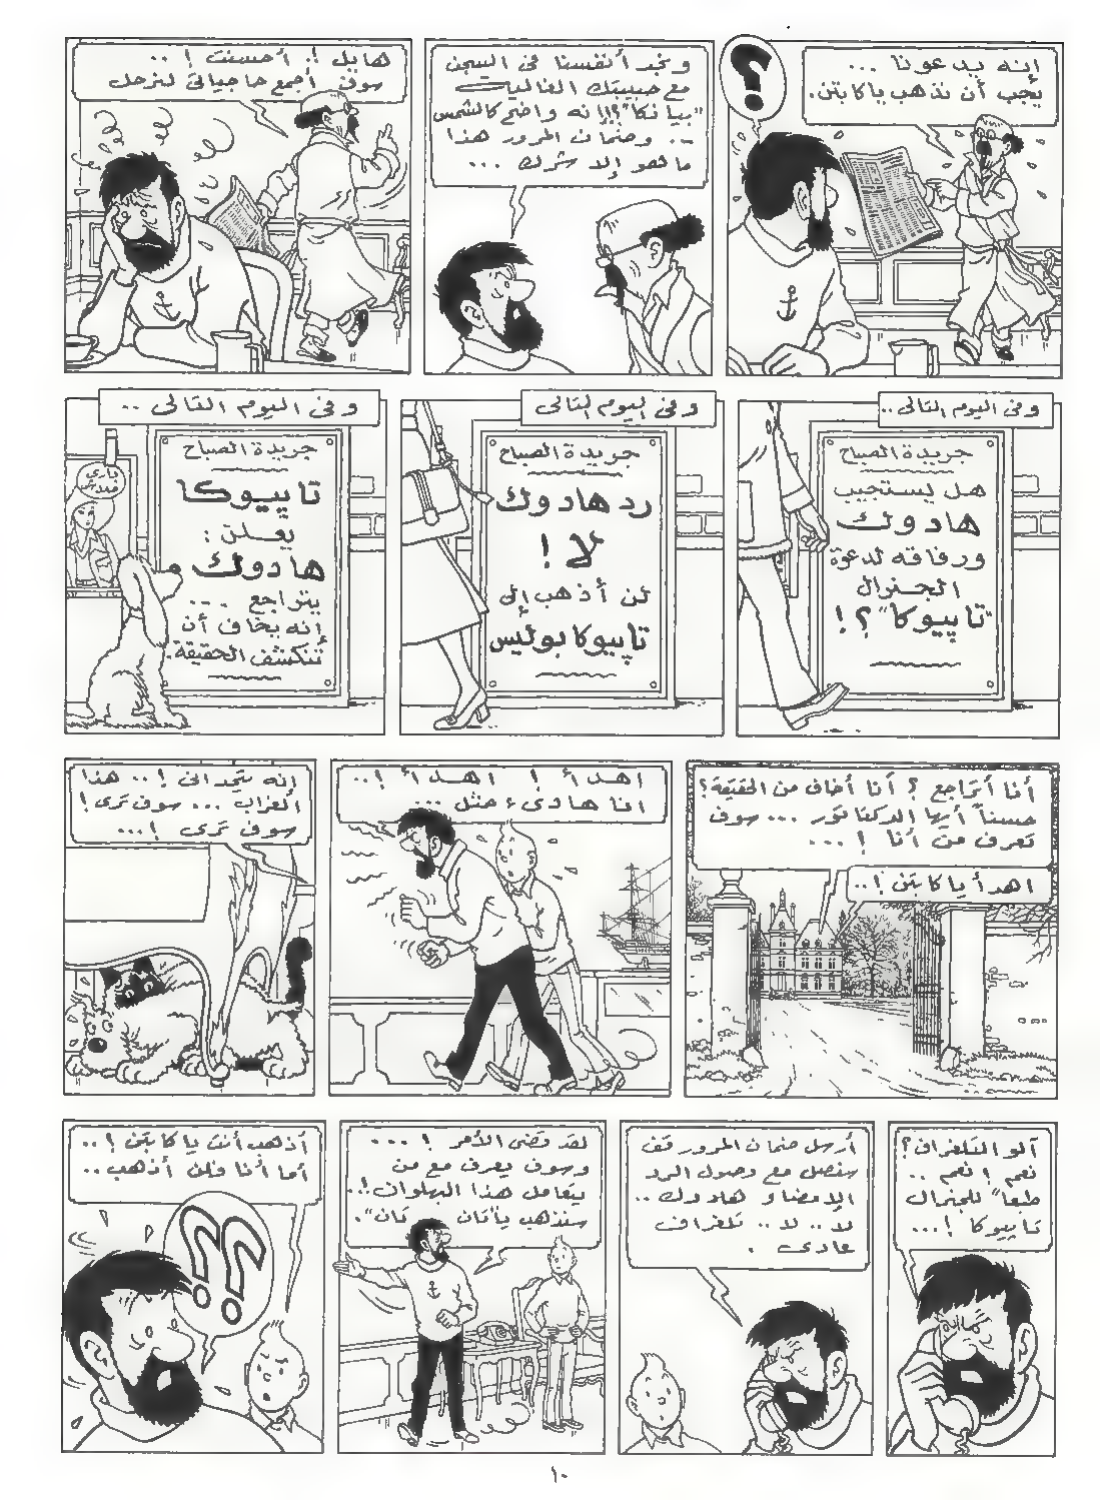 إنه يدعونا ...
يجب أن نذهب ياكابتن.
؟
ونجد أنفسنا فى السجن
مع حبيبتك الغاليت
"بيانكا"؟!! إنه واضح كالشمس
.. وضمان المرور هذا
ما هو إلا شرك ...
هايل !. أحسنت ! ..
سوف أجمع حاجياتى لنرحل
وفى اليوم التالى..
جريدة الصباح
هل يستجيب
هادوك
ورفاقه لدعوة
الجنرال
"تاپيوكا"؟!
وفى اليوم التالى
جريدة الصباح
رد هادوك
لا !
لن أذهب إلى
تاپيوكا پوليس
وفى اليوم التالى ..
جريدة الصباح
تاپيوكا
يعلن :
هادوك
يتراجع ...
إنه يخاف أن
تنكشف الحقيقة.
أنا أتراجع ؟ أنا أخاف من الحقيقة؟
حسناً أيها الدكتاتور ... سوف
تعرف من أنا ! ...
اهدأ ياكابتن !..
اهدأ ! اهدأ !..
انا هادىء مثل ..
إنه يتحدانى !.. هذا
الغراب ... سوف ترى !
سوف ترى !...
آلو التلغراف؟
نعم ! نعم ..
طبعاً للجنرال
تاپيوكا !...
أرسل ضمان المرور قف
سنصل مع وصول الرد
الإمضاء هادوك ..
لا .. لا .. تلغراف
عادى .
لقد قضى الأمر ! ...
وسوف يعرف مع من
يتعامل هذا البهلوان !.
سنذهب يا "تان تان".
أذهب أنت ياكابتن !..
أما أنا فلن أذهب ..
؟؟
١٠